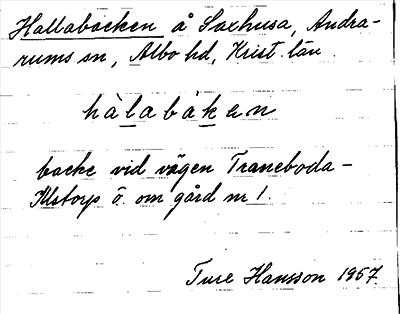 Hallabacken å Saxhusa, Andra-
rums sn, Albo hd, Krist. län.
hàlabàken
backe vid vägen Traneboda -
Alstorps ö. om gård nr 1.
Ture Hansson 1967.